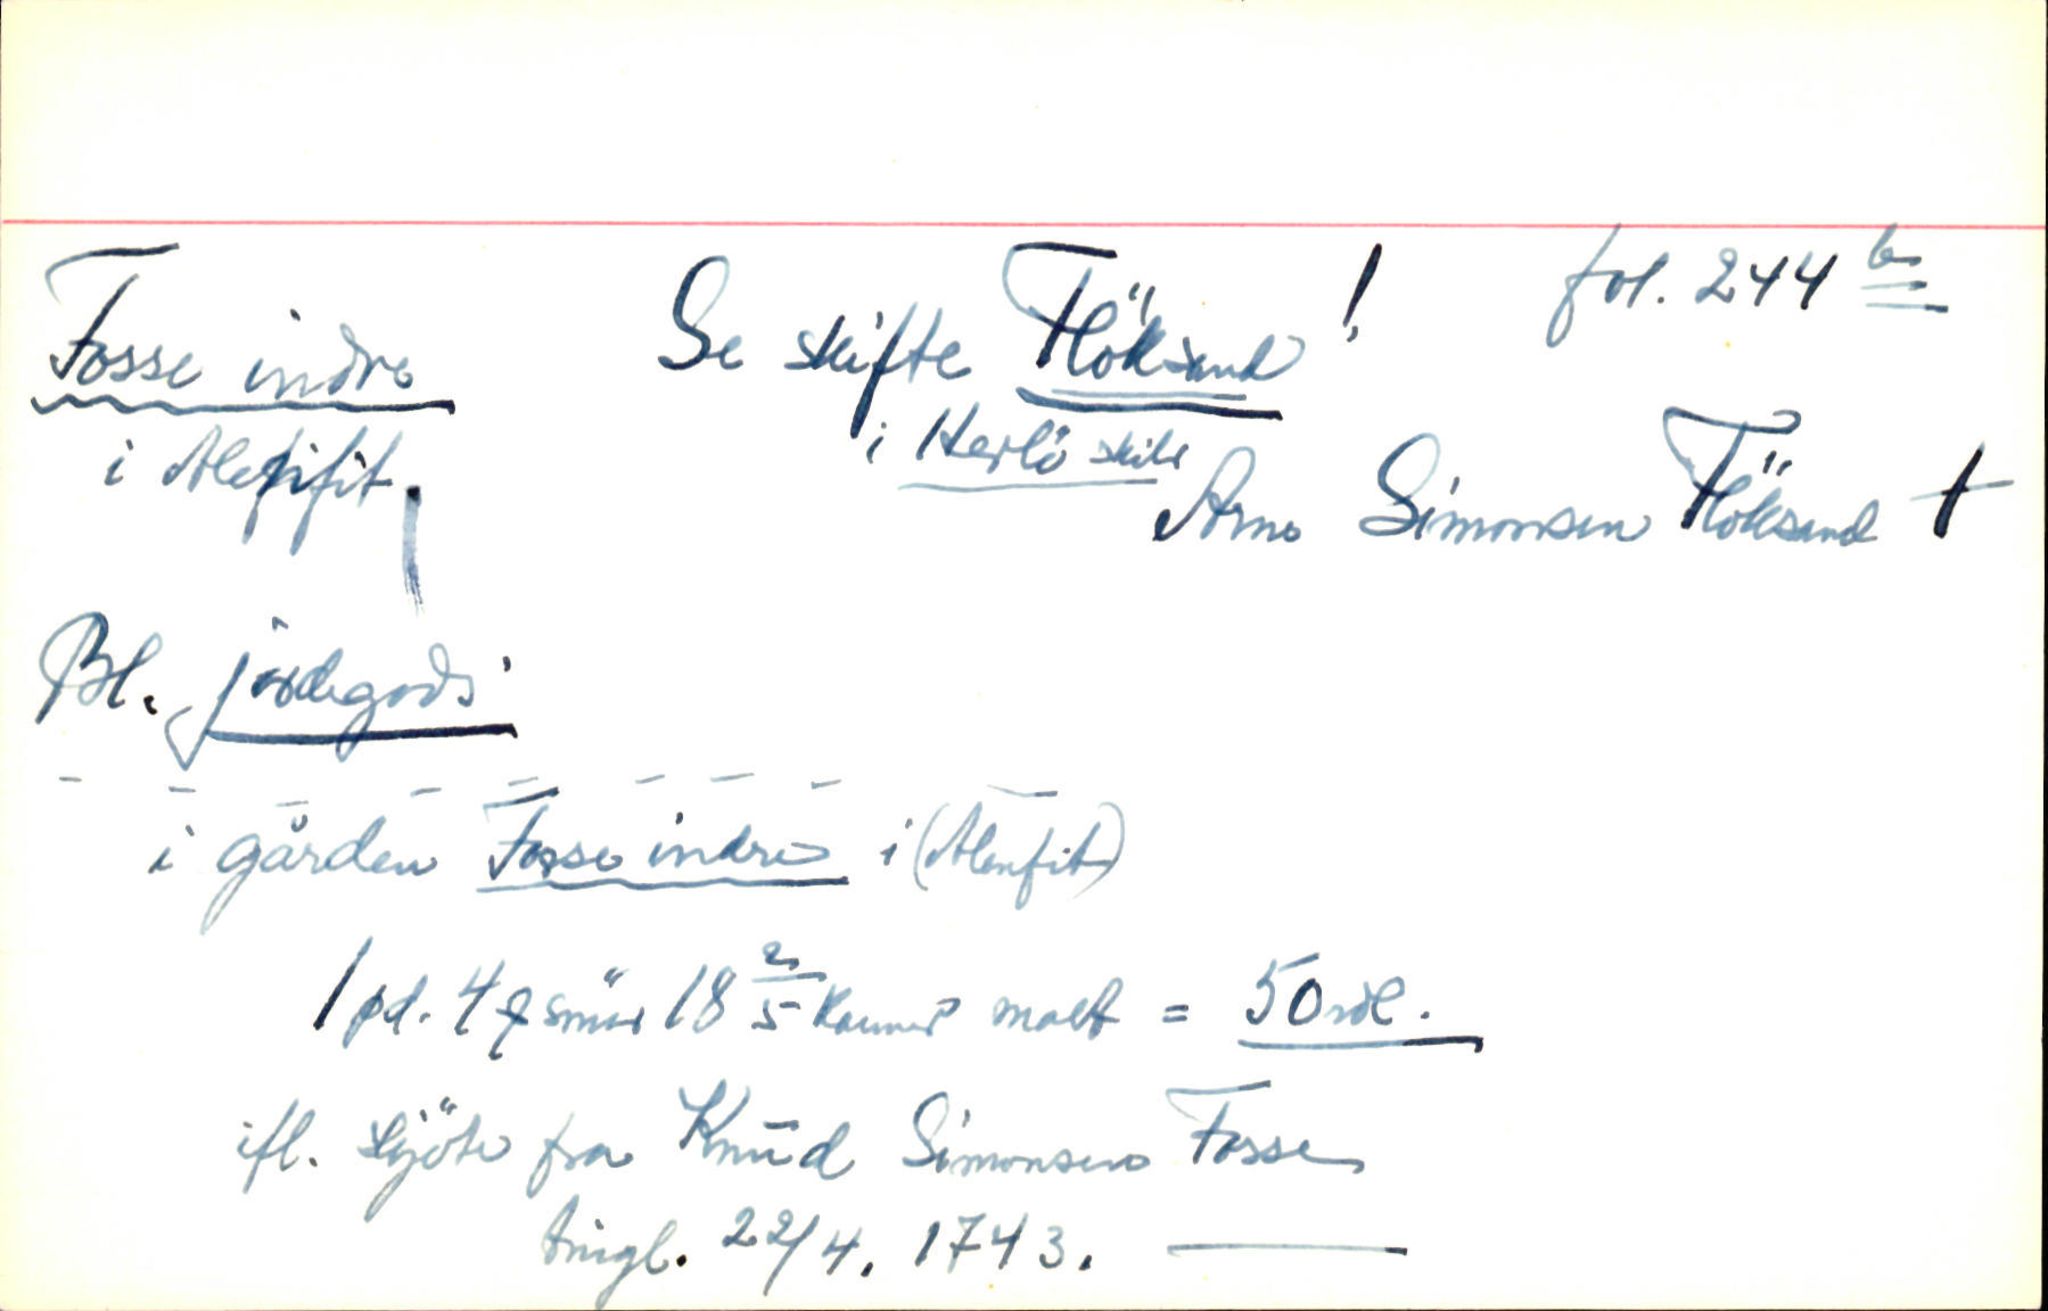 fol. 244 b
Fosse indre
Se skifte Flöksand!
i Alenfit.
i Herlö skibr
Arne Simonsen Flöksand †
Bl. jordegods
i gården Fosse indre i (Alenfit)
1 pd. 4 ℔ smör 18 2/5 kanner malt = 50 rdl.
ifl. skjöte fra Knud Simonsen Fosse
tingl. 22/4. 1743.